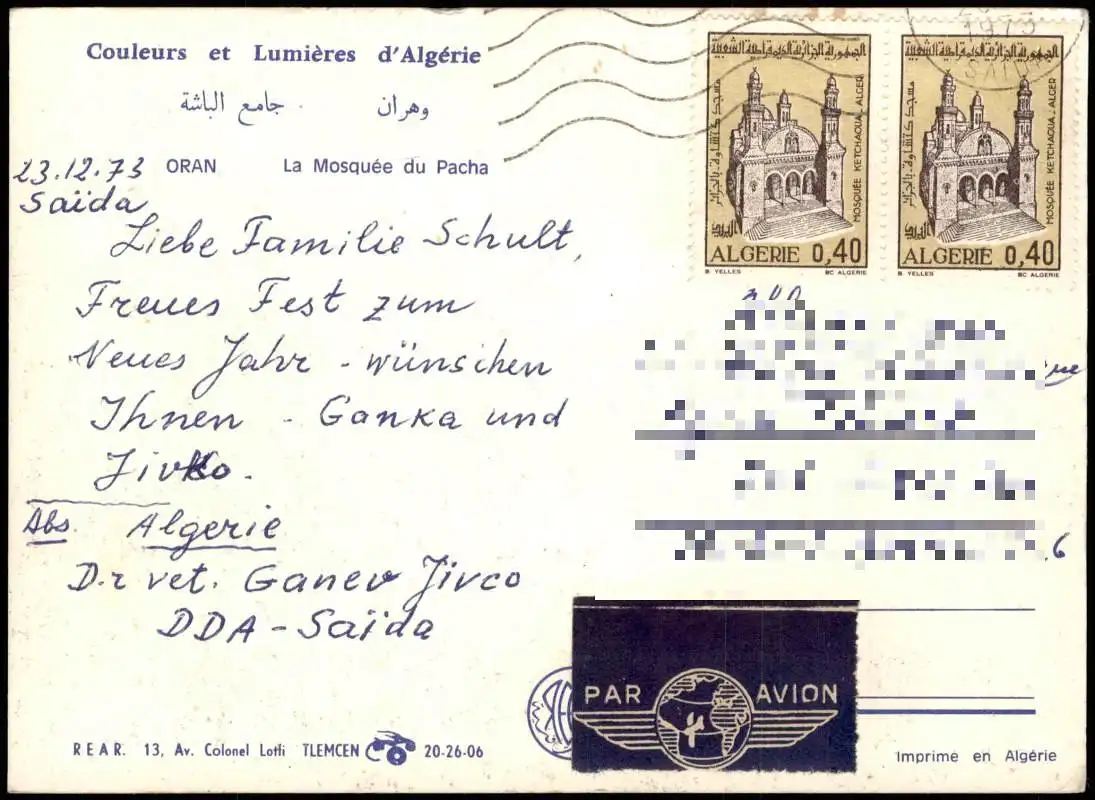 Couleurs et Lumières d'Algérie
وهران . جامع الباشة
ORAN La Mosquée du Pacha
23.12.73
Saïda
Liebe Familie Schult,
Freues Fest zum
Neues Jahr - wünschen
Ihnen - Ganka und
Jivko.
Abs. Algerie
D-r vet. Ganev Jivco
DDA - Saïda
R E A R. 13, Av. Colonel Lotfi TLEMCEN 20-26-06
1973
الجمهورية الجزائرية الديمقراطية الشعبية
مسجد كتشاوة - بالجزائر
MOSQUÉE KETCHAOUA - ALGER
البريد
ALGERIE 0,40
B YELLES BC ALGERIE
الجمهورية الجزائرية الديمقراطية الشعبية
مسجد كتشاوة - بالجزائر
MOSQUÉE KETCHAOUA - ALGER
البريد
ALGERIE 0,40
B YELLES BC ALGERIE
6
PAR AVION
Imprimé en Algérie